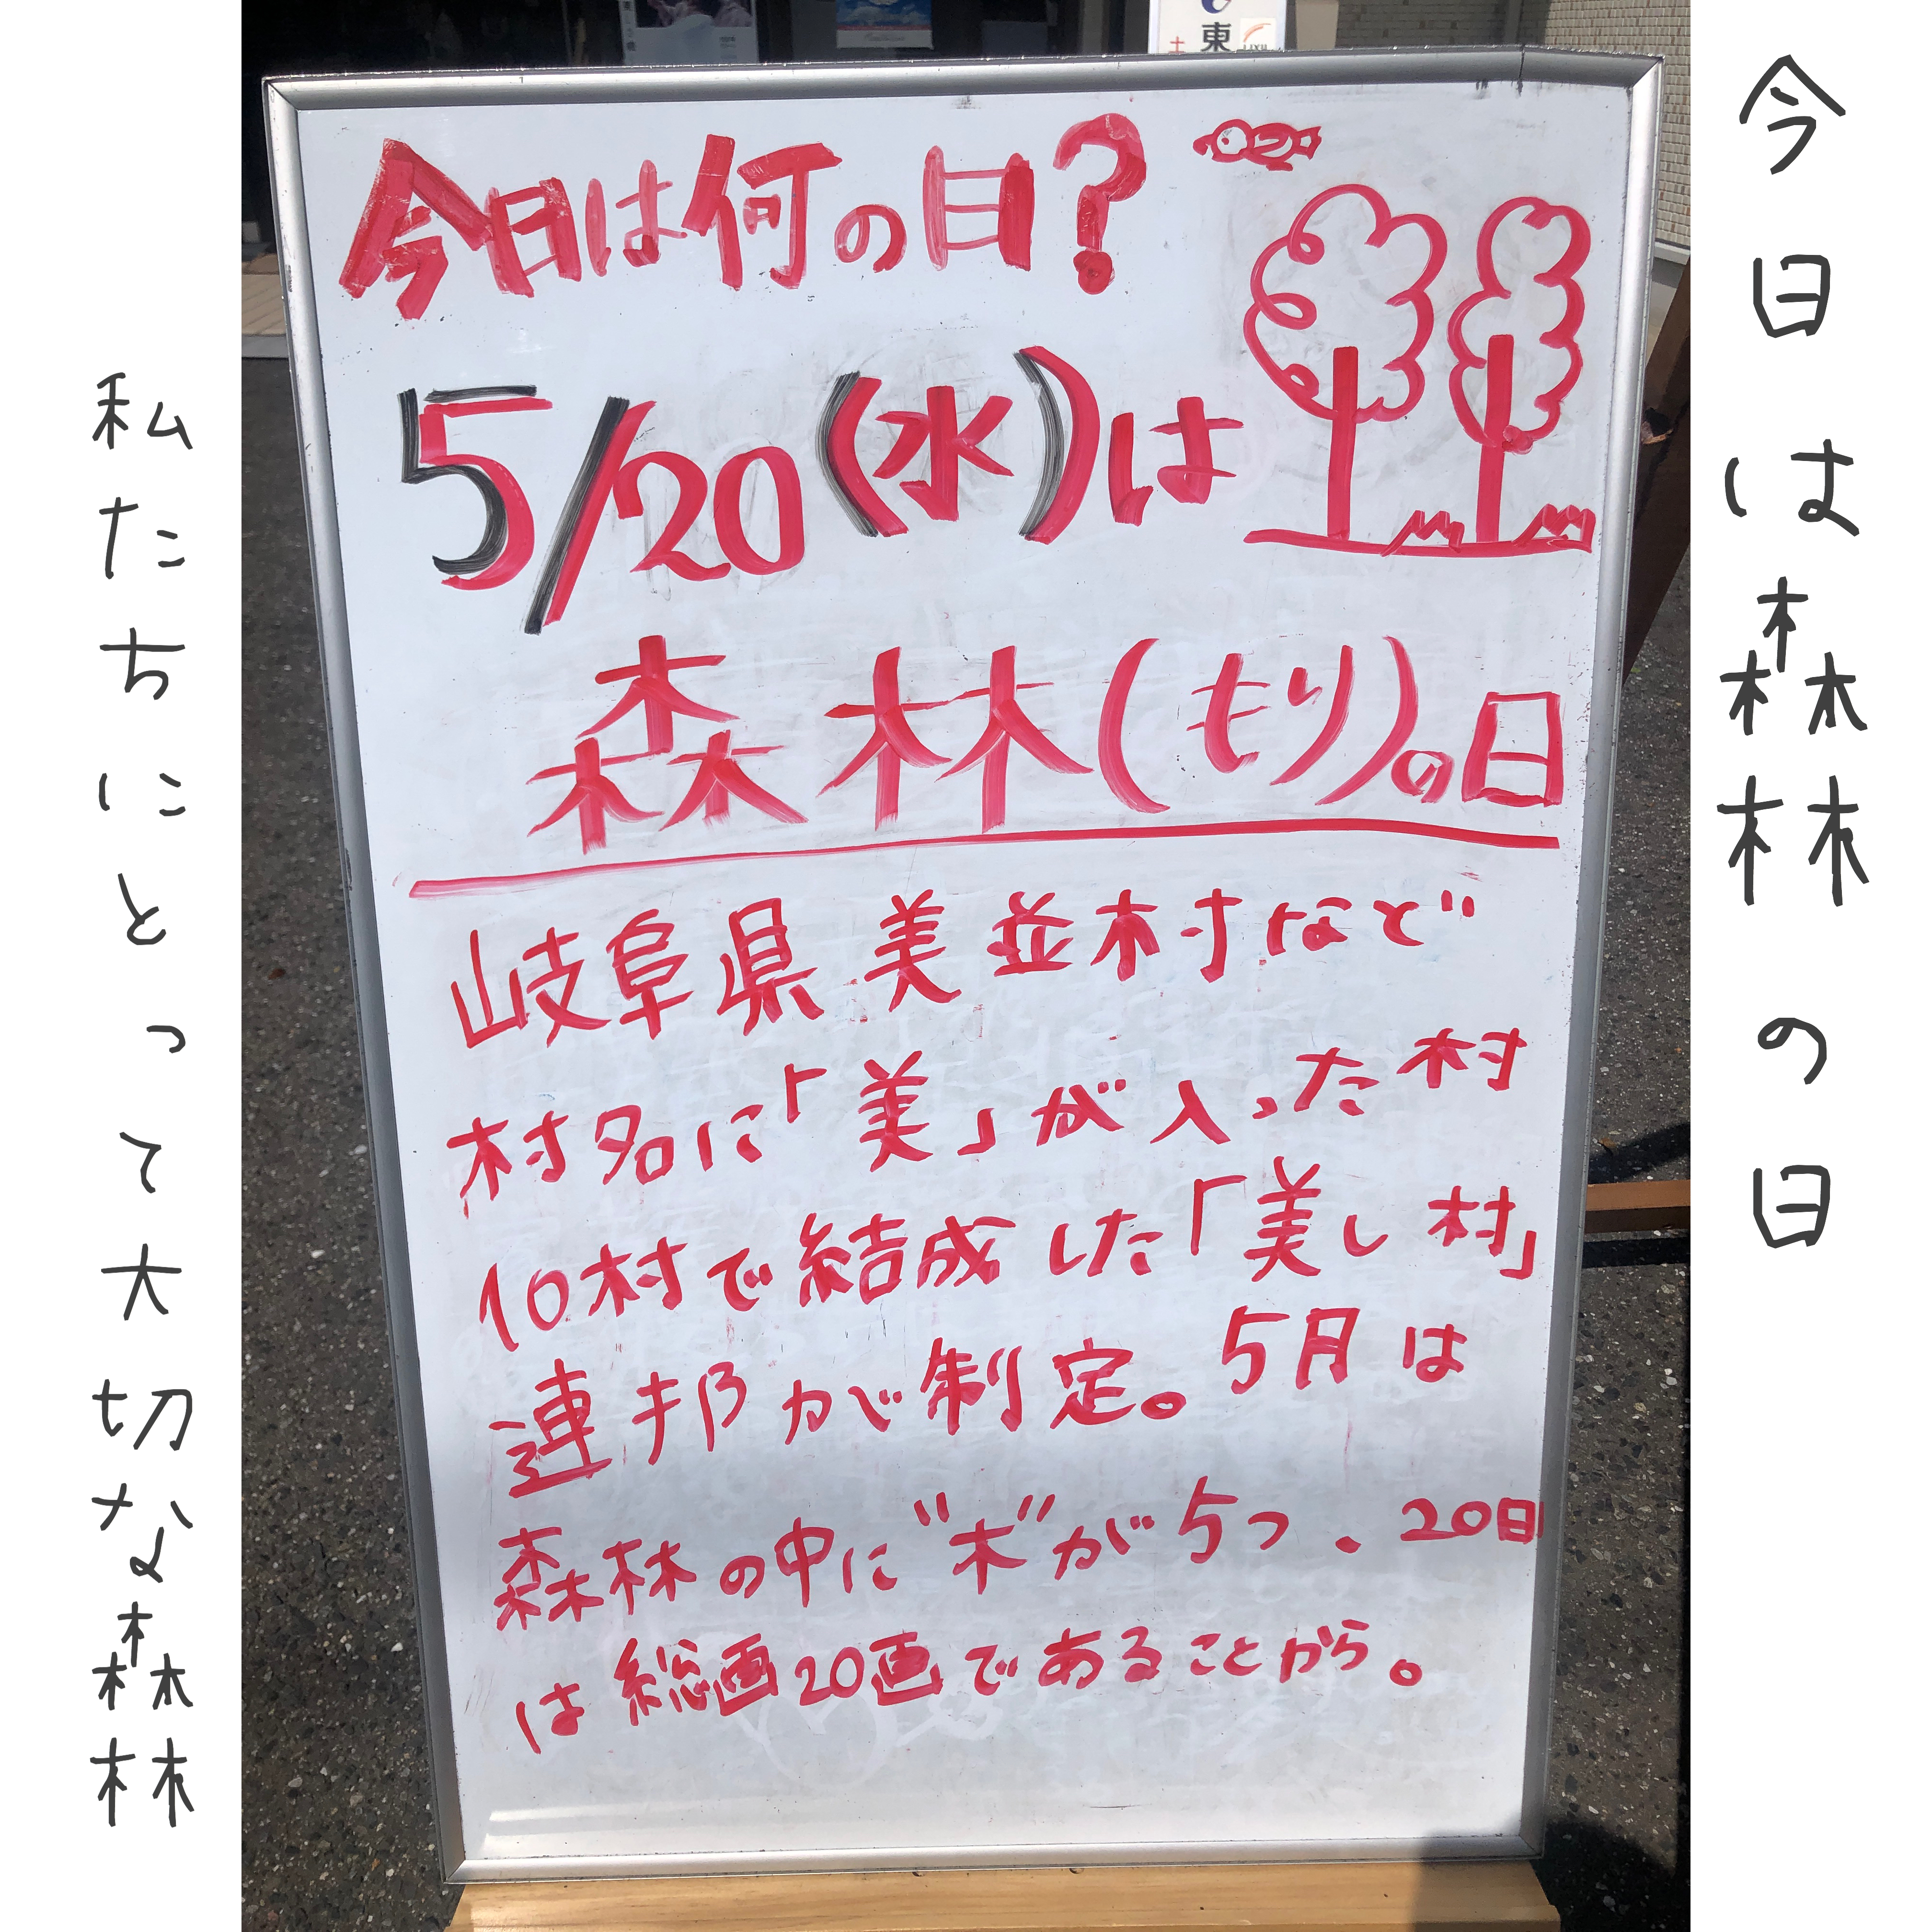 今日は森林の日
東
LIXIL
今日は何の日?
5/20(水)は
森林(もり)の日
岐阜県美並村など
村名に「美」が入った村
10村で結成した「美し村」
連邦が制定。5月は
森林の中に"木"が5つ、20日
は総画20画であることから。
私たちにとって大切な森林